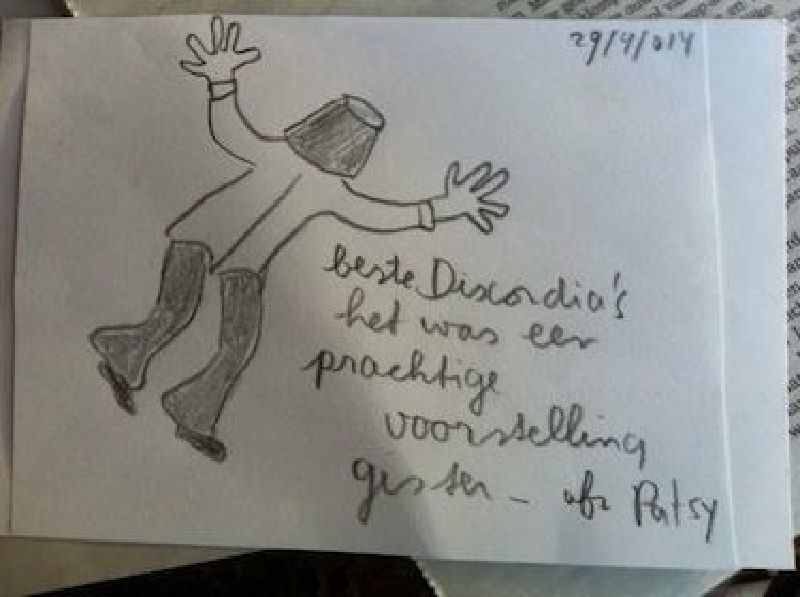 29/4/014
beste Discordia's
het was een
prachtige
voorstelling
gister - Patsy